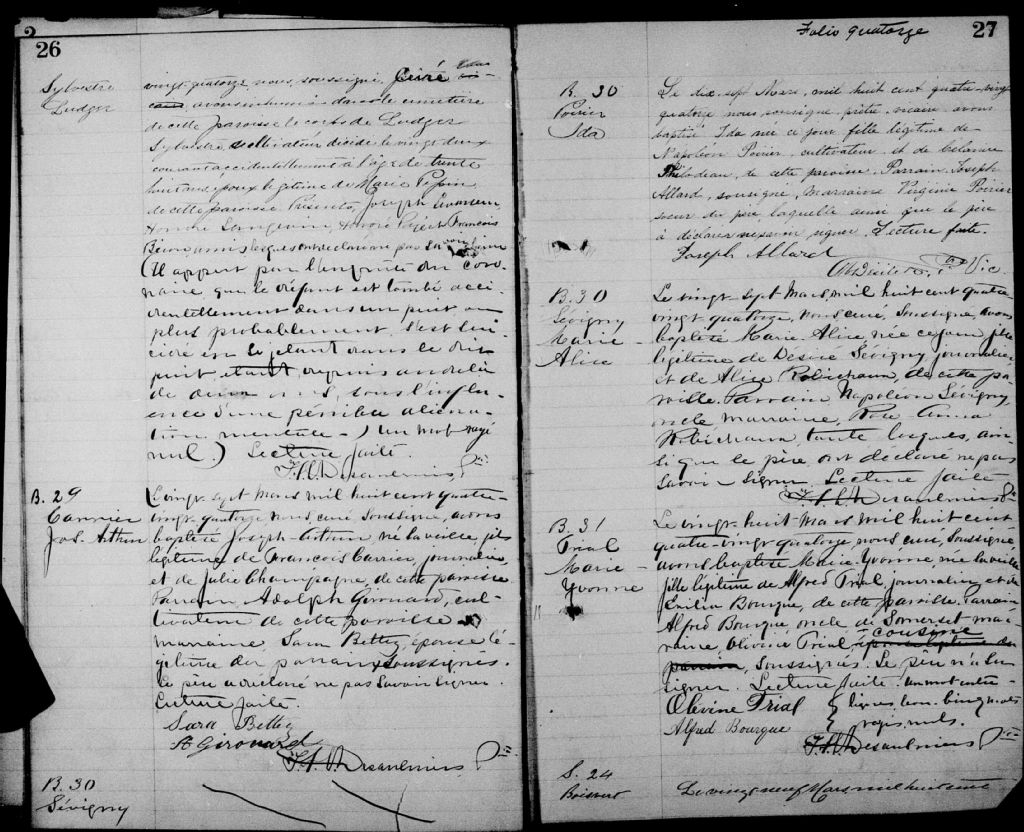 2
26
Sylvestre
Ludger
vingt-quatorze, nous, soussigné, Curé
avons inhumé dans le cimetière
de cette paroisse le corps de Ludger
Sylvestre, décédé le vingt deux
courant accidentellement à l'âge de trente
huit ans, époux légitime de Marie Pepin
de cette paroisse. Présents, Joseph
Honoré François
(Il appert par l'enquête du coro-
naire, que le défunt est tombé acci-
dentellement dans un puit, ou
plus probablement, s'est sui-
cidé en se jetant dans le dit
puit étant, depuis au delà
de deux ans, sous l'influ-
ence d'une pénible aliéna-
tion mentale-) Un mot rayé
nul) Lecture faite.
F.L. Desaulniers, Ptre
B. 29
Carrier
Jos. Arthur
Le vingt-sept mars mil huit cent quatre-
vingt-quatorze, nous, curé, soussigné, avons
baptisé Joseph-Arthur, né la veille, fils
légitime de Francois Carrier, journalier
et de Julie Champagne, de cette paroisse
Parrain, Adolph Girouard, cul-
tivateur de cette paroisse
marraine Sara Bettez, épouse lé-
gitime du parrain, soussignés.
Le père a déclaré ne pas savoir signer.
Lecture faite.
Sara Bettez
A Girouard
F.L. Desaulniers, Ptre
B. 30
Sévigny
Folio quatorze
27
B. 30
Poirier
Ida
Le dix-sept Mars, mil huit cent quatre-vingt
quatorze nous soussigné, prêtre, vicaire avons
baptisé Ida née ce jour fille légitime de
Napoléon Poirier, cultivateur et de
de cette paroisse. Parrain, Joseph
Allard, soussigné, Marraine Virginie Poirier
soeur du père, laquelle ainsi que le père
a déclaré ne savoir signer. Lecture faite.
Joseph Allard
Ptre Vic.
B. 30
Sévigny
Marie-
Alice
Le vingt-sept Mars mil huit cent quatre-
vingt quatorze, nous, curé, soussigné, avons
baptisé Marie-Alice, née ce jour, fille
légitime de Désiré Sévigny, journalier,
et de Alice Robichaux, de cette pa-
roisse. Parrain Napoléon Sévigny,
oncle marraine, Rose Anna
Robichaux tante lesques, ain-
si que le père, ont déclaré ne pas
savoir signer. Lecture faite
F.L. Desaulniers Ptre
B. 31
Trial
Marie-
Yvonne
Le vingt-huit Mars mil huit cent
quatre-vingt quatorze, nous, curé, soussigné
avons baptisé Marie-Yvonne, née la veille
fille légitime de Alfred Trial, journalier, et de
Emilia Bourque, de cette paroisse. Parrain
Alfred Bourque oncle de Somerset mar-
raine Olivine Trial, cousine épouse légitime du
parrain, soussignés. Le père n'a su
signer. Lecture faite. un mot entre-
Olivine Trial lignes bon. Cinq mots
Alfred Bourque rayés nuls.
F.L. Desaulniers Ptre
S. 24
Boisvert
Le vingt-neuf Mars mil huit cent